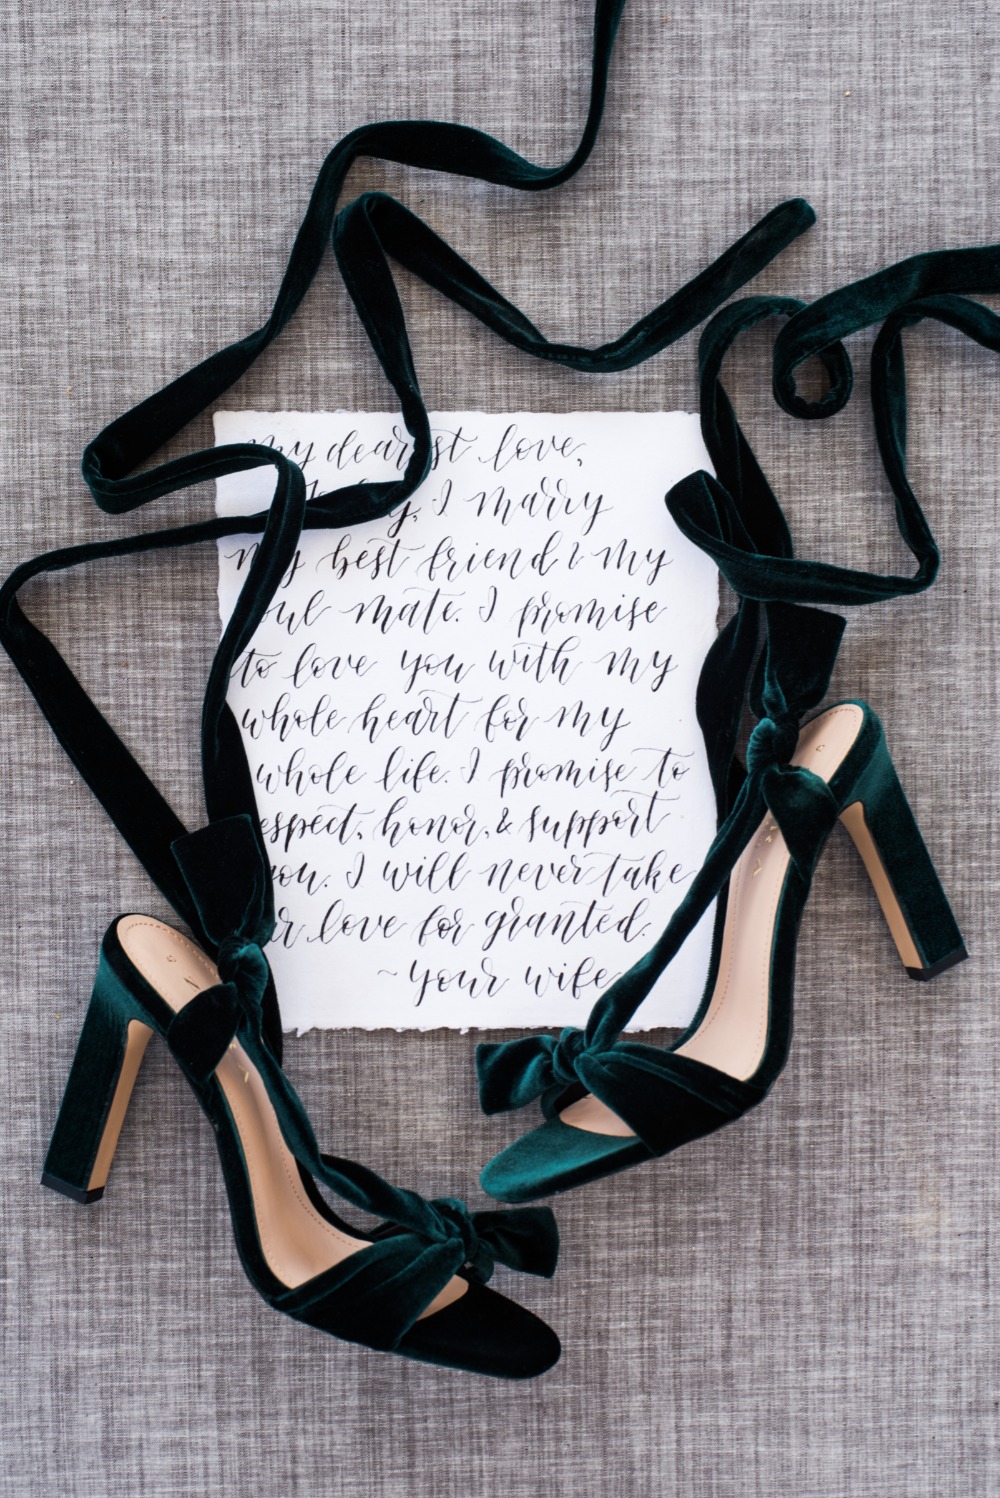 my dearest love,
I marry
my best friend & my
soul mate. I promise
to love you with my
whole heart for my
whole life. I promise to
respect, honor, & support
you. I will never take
our love for granted.
~ your wife